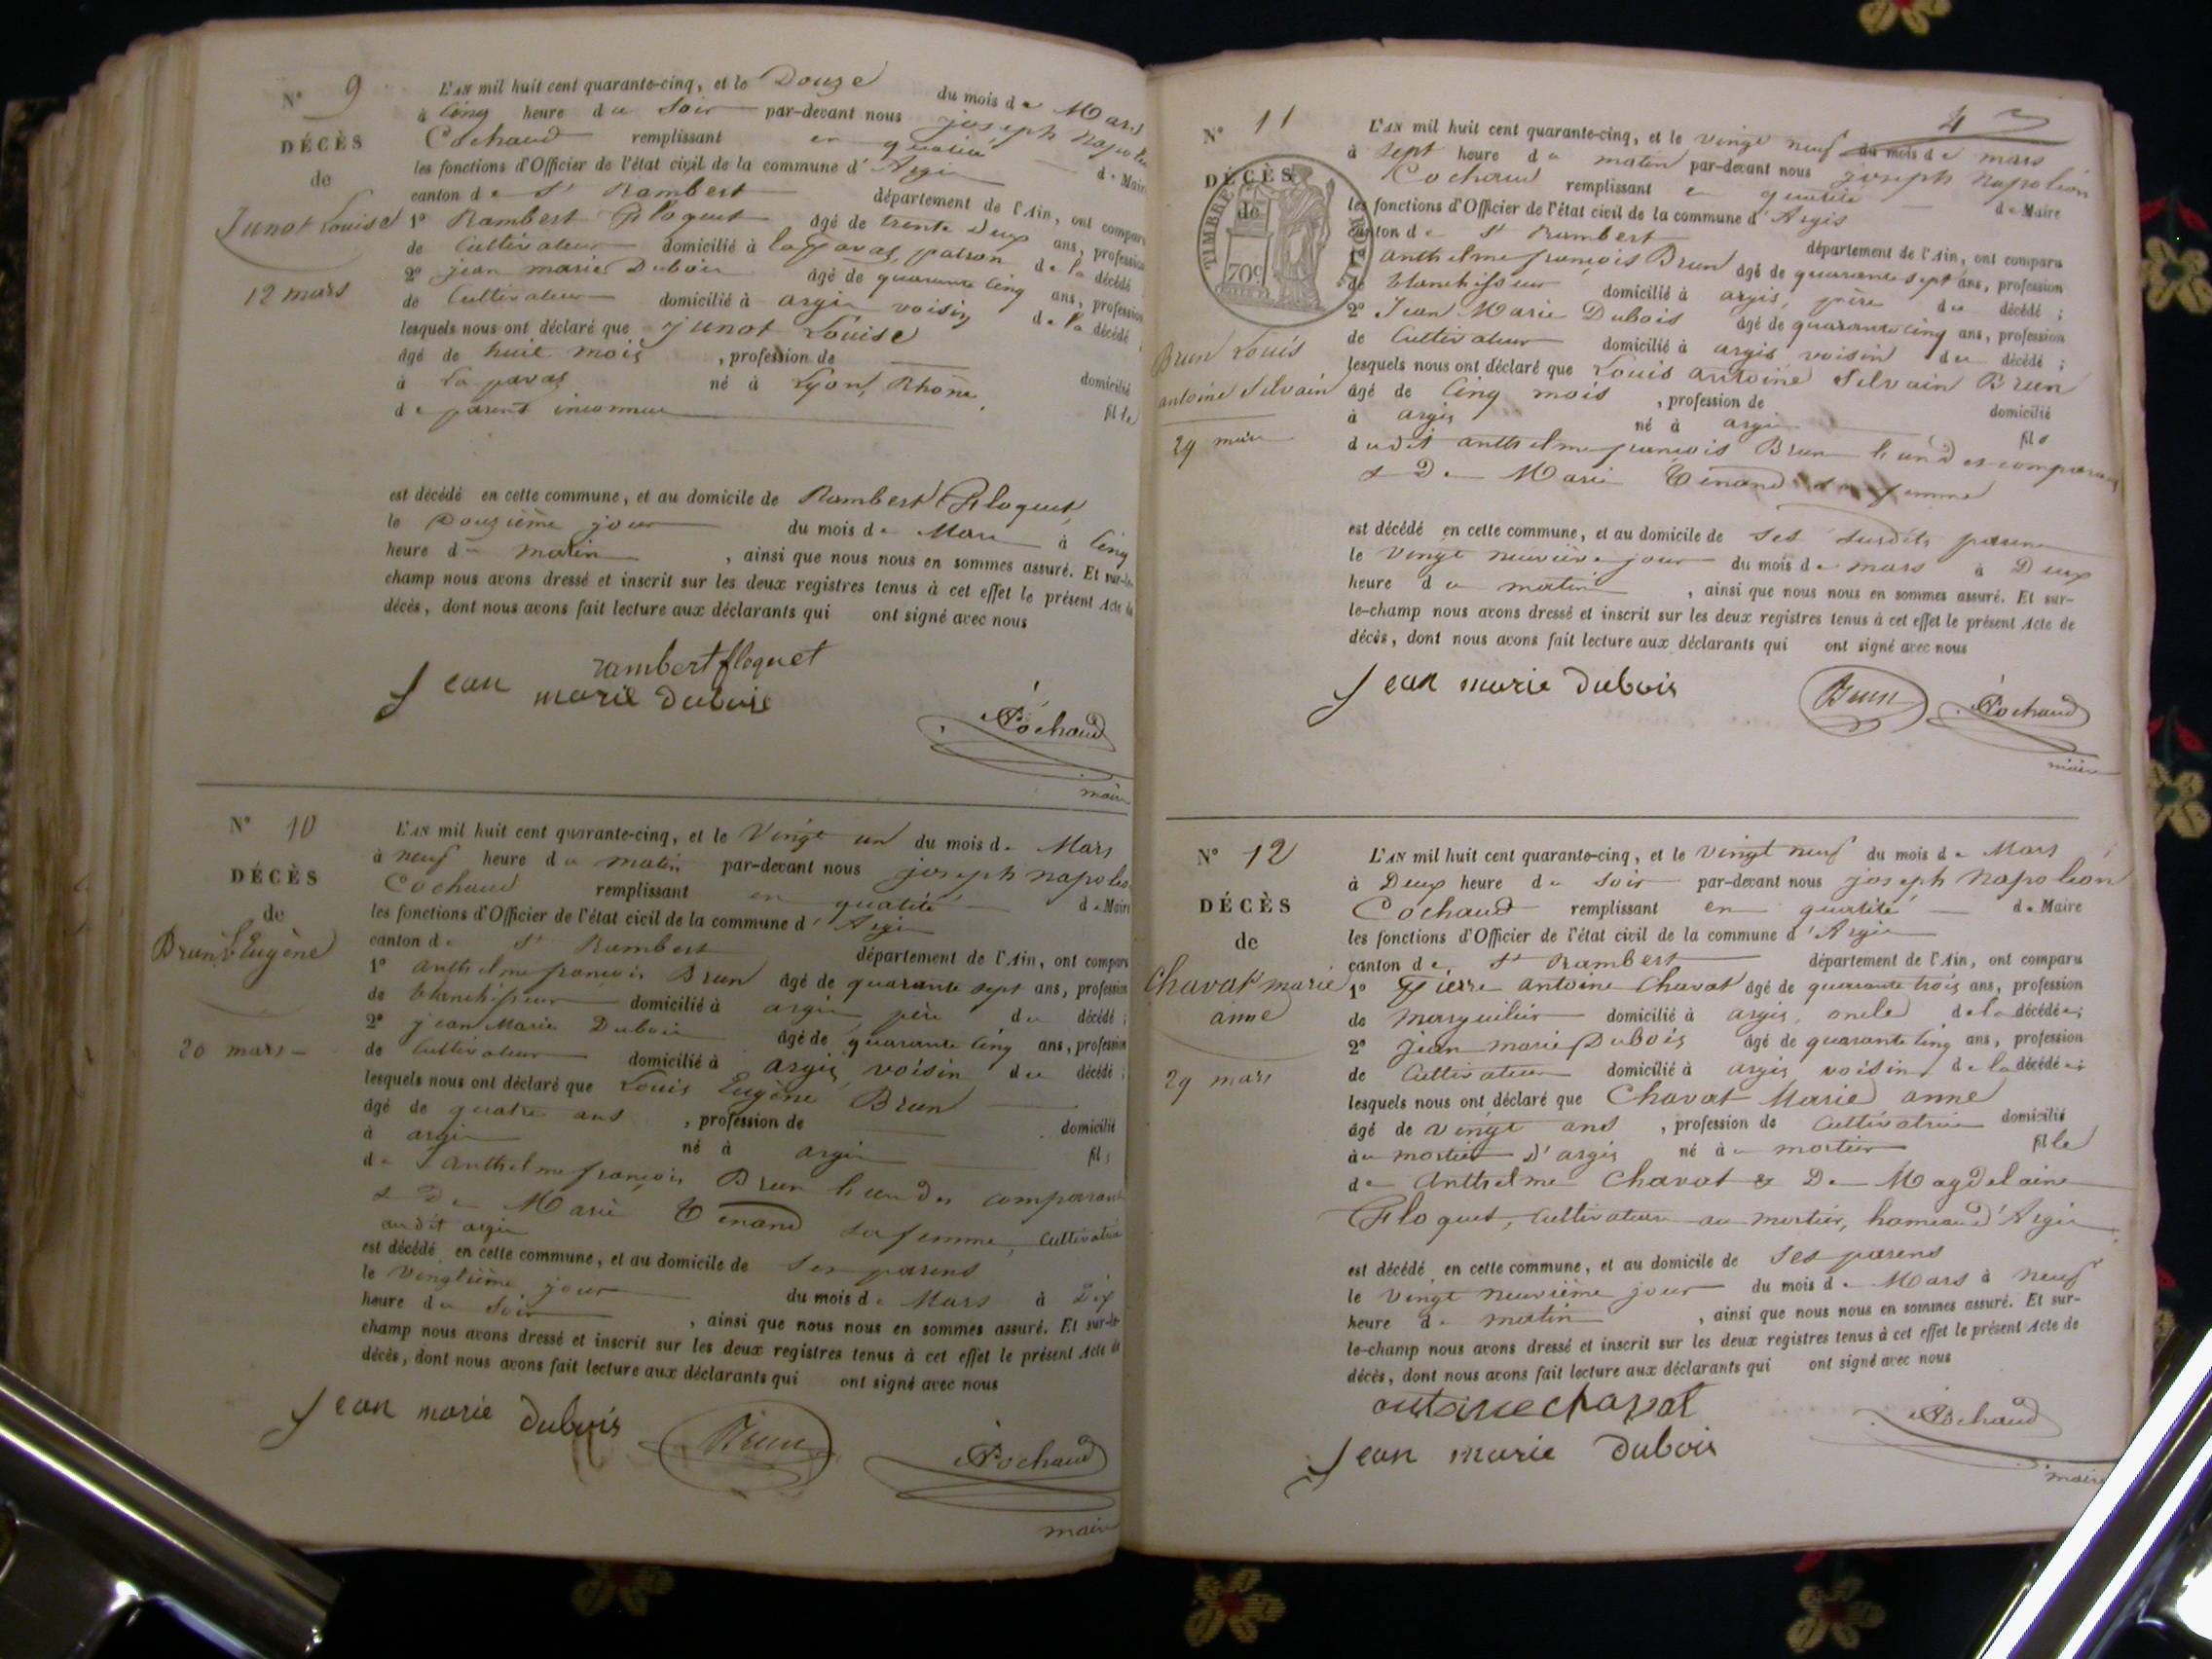 N° 9
DÉCÈS
de
Junot Louise
12 mars
L'AN mil huit cent quarante-cinq, et le Douze du mois de Mars
à cinq heure du soir par-devant nous joseph Napolé
Cochaud remplissant en qualité de Maire
les fonctions d'Officier de l'état civil de la commune d'Argis
canton de St Rambert département de l'Ain, ont comparu
1° Rambert Floquet âgé de trente Deux ans, profession
de Cultivateur domicilié à la pavas, patron de la décédé
2° jean marie Dubois âgé de quarante cinq ans, profession
de Cultivateur domicilié à argis voisin de la décédé ;
lesquels nous ont déclaré que junot Louise
âgé de huit mois , profession de domicilié
à la pavas né à Lyon, Rhône, fille
de parens inconnus
est décédé en cette commune, et au domicile de Rambert Floquet,
le Douzième jour du mois de Mars à cinq
heure du matin , ainsi que nous nous en sommes assuré. Et sur-le-
champ nous avons dressé et inscrit sur les deux registres tenus à cet effet le présent Acte de
décès, dont nous avons fait lecture aux déclarants qui ont signé avec nous
rambert floquet
Jean marie Dubois
Cochaud
maire
N° 10
DÉCÈS
de
Brun L Eugène
20 mars
L'AN mil huit cent quarante-cinq, et le Vingt un du mois de Mars
à neuf heure du matin par-devant nous joseph napoléo
Cochaud remplissant en qualité de Maire
les fonctions d'Officier de l'état civil de la commune d'Argis
canton de St Rambert département de l'Ain, ont comparu
1° anthelme françois Brun âgé de quarante sept ans, profession
de blanchisseur domicilié à argis, père du décédé ;
2° jean Marie Dubois âgé de quarante cinq ans, profession
de Cultivateur domicilié à argis, voisin du décédé ;
lesquels nous ont déclaré que Louis Eugène Brun
âgé de quatre ans , profession de domicilié
à argis né à argis fils
de anthelme françois Brun l'un des comparant
& De Marie Tenand sa femme, Cultivatrice
audit argis
est décédé en cette commune, et au domicile de ses parens
le Vingtième jour du mois de Mars à Dix
heure du soir , ainsi que nous nous en sommes assuré. Et sur-le-
champ nous avons dressé et inscrit sur les deux registres tenus à cet effet le présent Acte de
décès, dont nous avons fait lecture aux déclarants qui ont signé avec nous
Jean marie Dubois Brun Cochaud
maire
4
N° 11
DÉCÈS
de
TIMBRE ROYAL
70c
Brun Louis
antoine Silvain
29 mars
L'AN mil huit cent quarante-cinq, et le vingt neuf du mois de mars
à sept heure du matin par-devant nous joseph Napoléon
Cochaud remplissant en qualité de Maire
les fonctions d'Officier de l'état civil de la commune d'Argis
canton de St Rambert département de l'Ain, ont comparu
1° anthelme françois Brun âgé de quarante sept ans, profession
de blanchisseur domicilié à argis, père du décédé ;
2° Jean Marie Dubois âgé de quarante cinq ans, profession
de Cultivateur domicilié à argis voisin du décédé ;
lesquels nous ont déclaré que Louis antoine Silvain Brun
âgé de Cinq mois , profession de domicilié
à argis né à argis fils
dudit anthelme françois Brun l'un des comparans
& De Marie Tenand sa femme
est décédé en cette commune, et au domicile de ses susdits parens
le Vingt neuvième jour du mois de mars à Deux
heure du matin , ainsi que nous nous en sommes assuré. Et sur-
le-champ nous avons dressé et inscrit sur les deux registres tenus à cet effet le présent Acte de
décès, dont nous avons fait lecture aux déclarants qui ont signé avec nous
Jean marie Dubois Brun Cochaud
maire
N° 12
DÉCÈS
de
Chavat marie
anne
29 mars
L'AN mil huit cent quarante-cinq, et le Vingt neuf du mois de Mars
à Deux heure du soir par-devant nous joseph Napoléon
Cochaud remplissant en qualité de Maire
les fonctions d'Officier de l'état civil de la commune d'Argis
canton de St Rambert département de l'Ain, ont comparu
1° Pierre antoine Chavat âgé de quarante trois ans, profession
de marguilier domicilié à argis, oncle de la décédée ;
2° jean marie Dubois âgé de quarante cinq ans, profession
de Cultivateur domicilié à argis voisin de la décédée ;
lesquels nous ont déclaré que Chavat Marie anne
âgé de vingt ans , profession de Cultivatrice domicilié
au mortier D'argis né au mortier fille
de Anthelme Chavat & De Magdelaine
Floquet, cultivateur au mortier, hameau d'Argis
est décédé en cette commune, et au domicile de ses parens
le Vingt neuvième jour du mois de Mars à neuf
heure du matin , ainsi que nous nous en sommes assuré. Et sur-
le-champ nous avons dressé et inscrit sur les deux registres tenus à cet effet le présent Acte de
décès, dont nous avons fait lecture aux déclarants qui ont signé avec nous
antoine chavat
Cochaud
Jean marie Dubois
maire